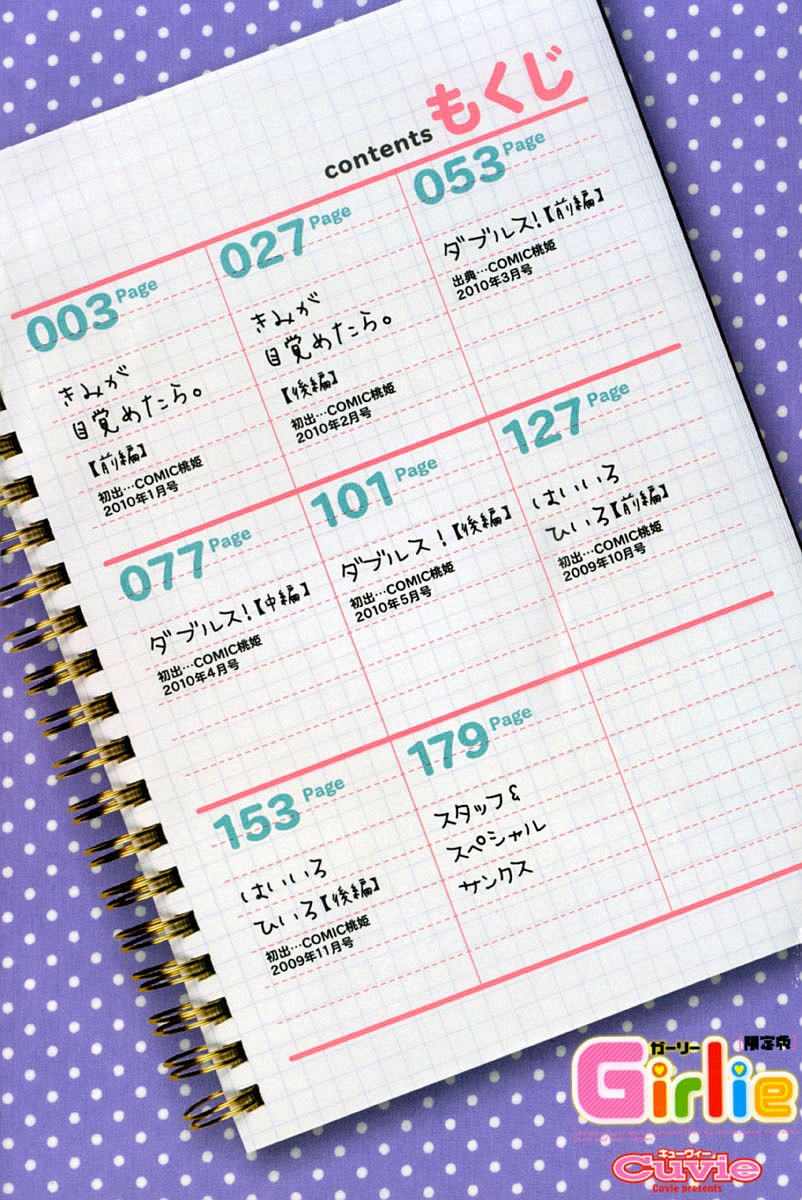 もくじ
contents
003 Page
きみが
目覚めたら。
【前編】
初出…COMIC桃姫
2010年1月号
027 Page
きみが
目覚めたら。
【後編】
初出…COMIC桃姫
2010年2月号
053 Page
ダブルス!【前編】
出典…COMIC桃姫
2010年3月号
077 Page
ダブルス!【中編】
初出…COMIC桃姫
2010年4月号
101 Page
ダブルス!【後編】
初出…COMIC桃姫
2010年5月号
127 Page
はいいろ
ひいろ【前編】
初出…COMIC桃姫
2009年10月号
153 Page
はいいろ
ひいろ【後編】
初出…COMIC桃姫
2009年11月号
179 Page
スタッフ&
スペシャル
サンクス
ガーリー
限定版
Girlie
キューヴィー
Cuvie
Cuvie presents